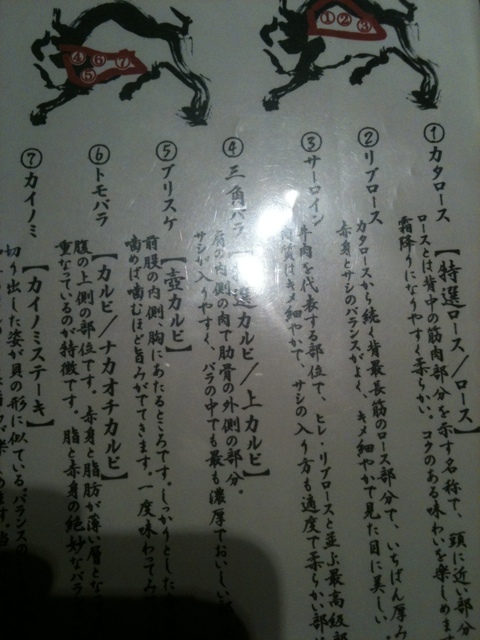 ①②③
④⑥⑦
⑤
①カタロース
【特選ロース/ロース】
ロースとは背中の筋肉部分を示す名称で、頭に近い部分
霜降りになりやすく柔らかい。コクのある味わいを楽しめま
②リブロース
カタロースから続く背最長筋のロース部分で、いちばん厚み
赤身とサシのバランスがよく、キメ細やかで見た目に美しい。
③サーロイン
牛肉を代表する部位で、ヒレ・リブロースと並ぶ最高級
肉質はキメ細やかで、サシの入り方も適度で柔らかい部
④三角バラ
選カルビ/上カルビ】
肩の内側の肉で肋骨の外側の部分。
サシが入りやすく、バラの中でも最も濃厚でおいしい
⑤ブリスケ
【壺カルビ】
前腹の内側、胸にあたるところです。しっかりとした
噛めば噛むほど旨みがでてきます。一度味わってみ
⑥トモバラ
【カルビ/ナカオチカルビ】
腹の上側の部位です。赤身と脂肪が薄い層とな
重なっているのが特徴です。脂と赤身の絶妙なバラ
⑦カイノミ
【カイノミステーキ】
切り出した姿が貝の形に似ている
バランスの